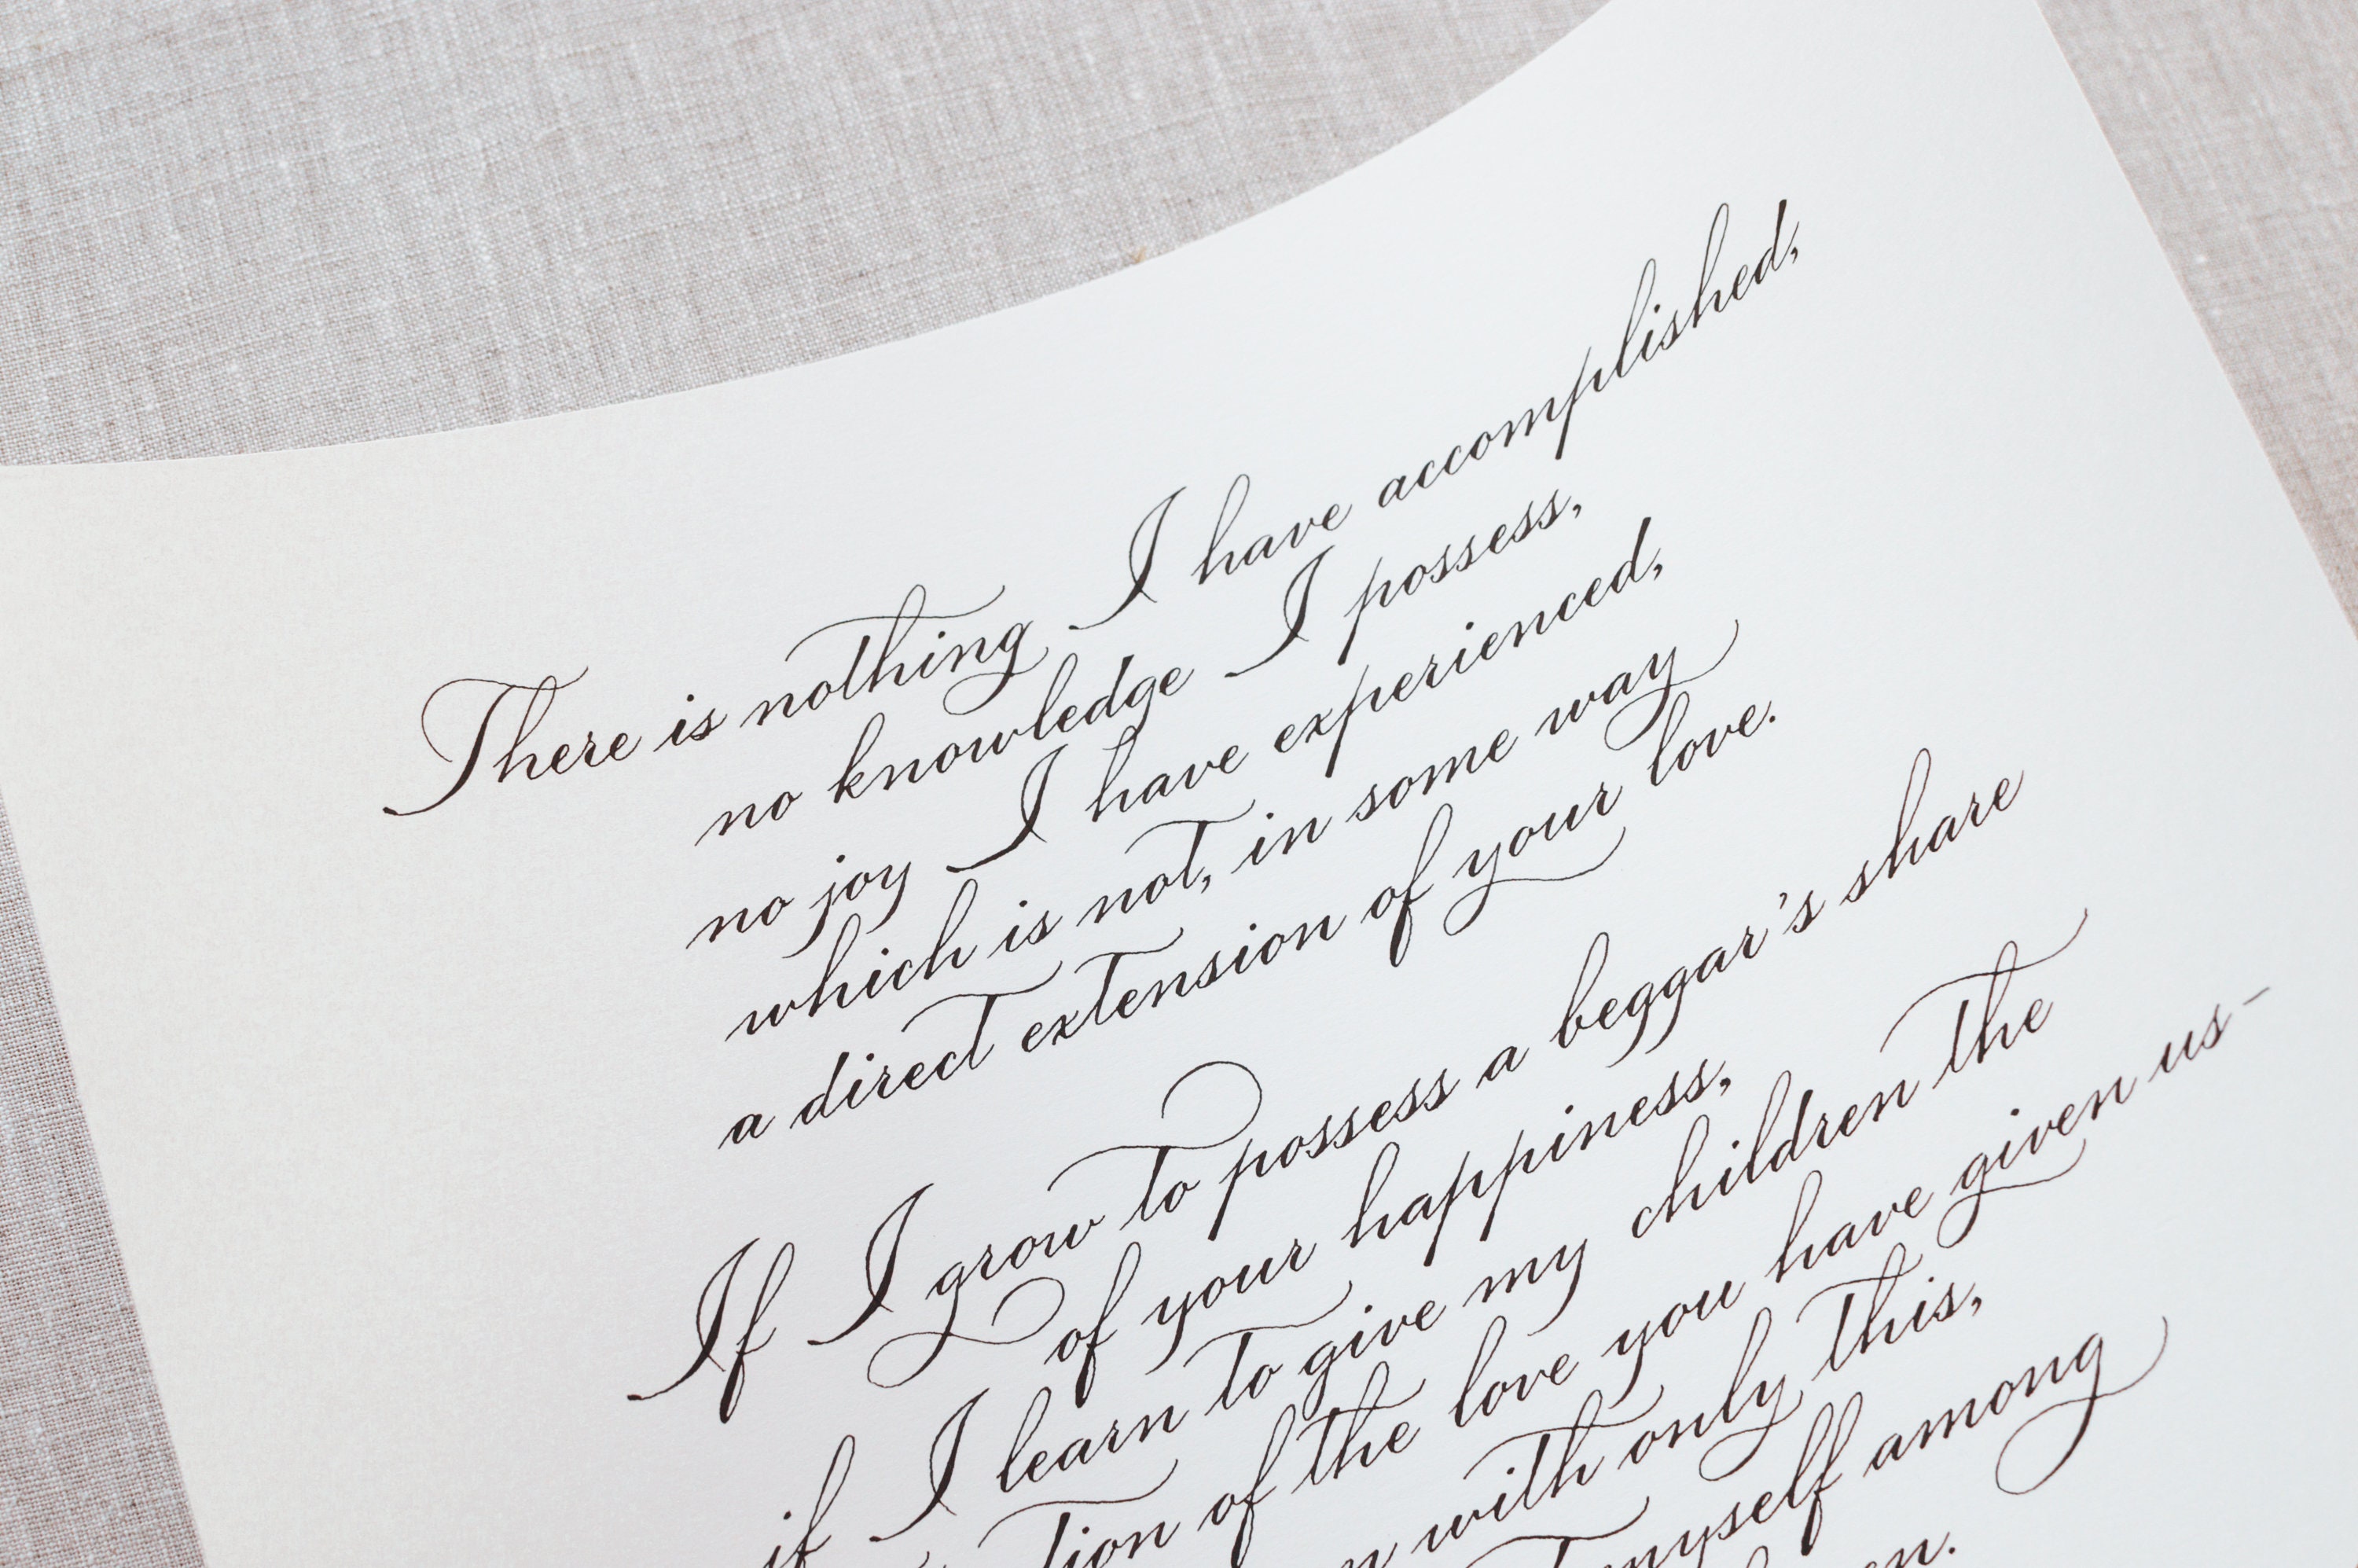 There is nothing I have accomplished,
no knowledge I possess,
no joy I have experienced,
which is not, in some way
a direct extension of your love.
If I grow to possess a beggar's share
of your happiness,
if I learn to give my children the
tion of the love you have given us-
with only this,
myself among